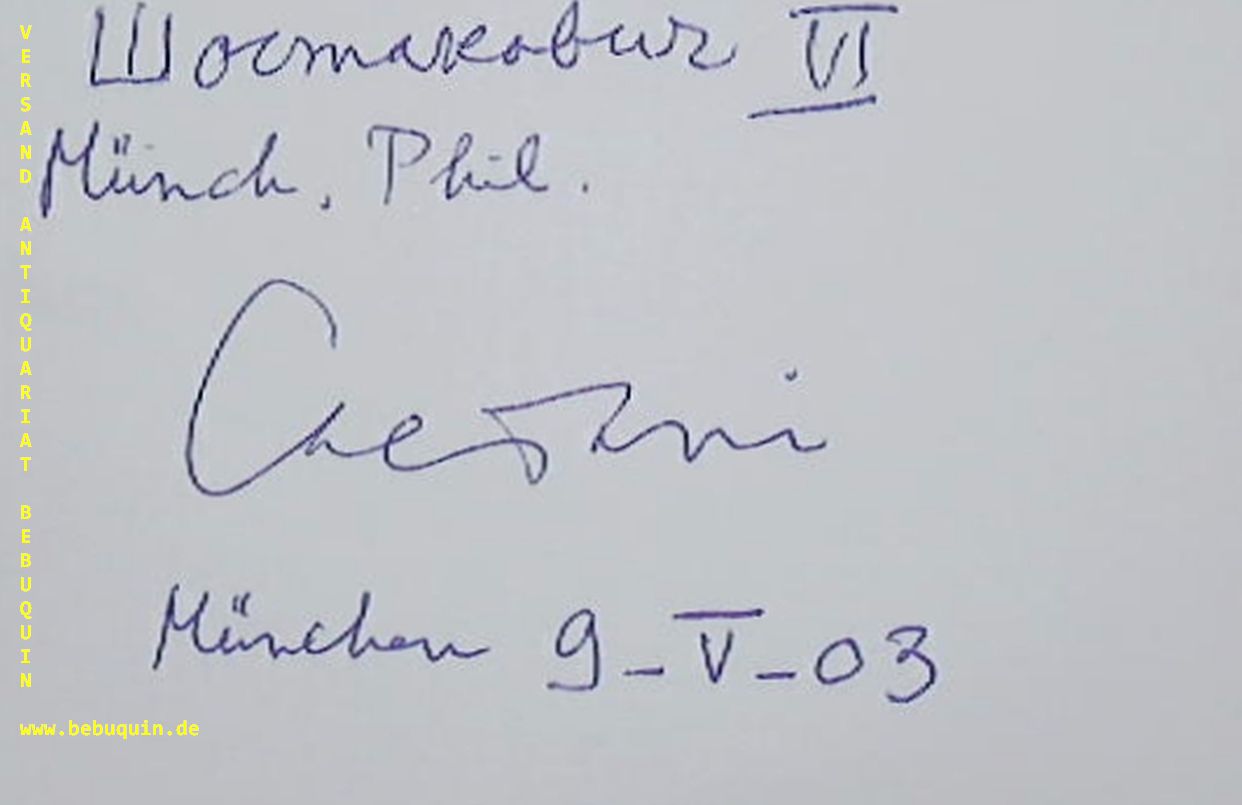 Шостакович VI
Münch. Phil.
Caetani
München 9-V-03
VERSAND ANTIQUARIAT BEBUQUIN
www.bebuquin.de